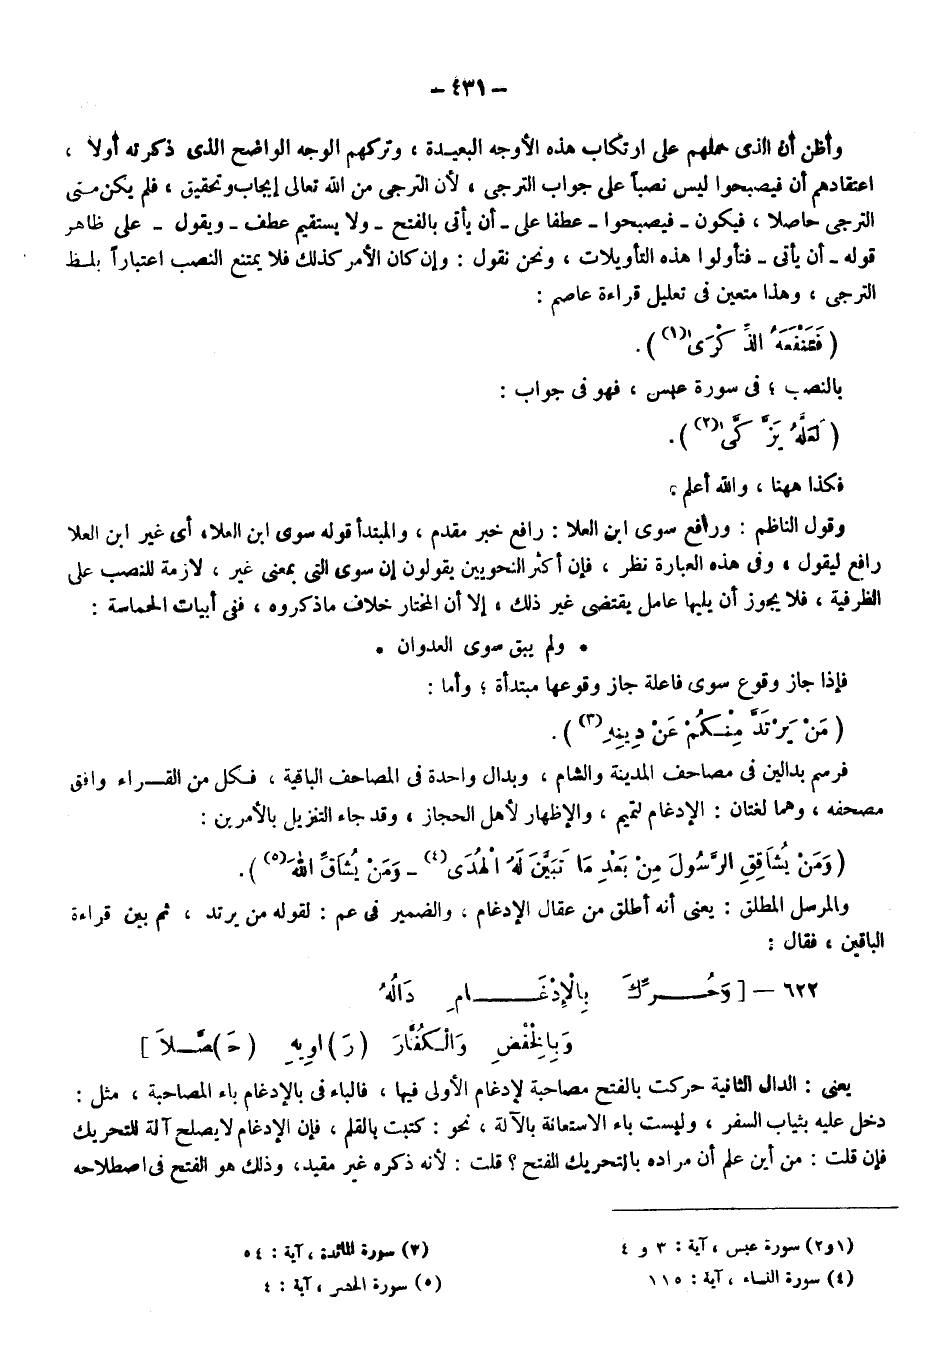 – ٤٣١ –
وأظن أن الذى حملهم على ارتكاب هذه الأوجه البعيدة ، وتركهم الوجه الواضح الذى ذكرته أولا ،
اعتقادهم أن فيصبحوا ليس نصباً على جواب الترجى ، لأن الترجى من الله تعالى إيجاب وتحقيق ، فلم يكن متى
الترجى حاصلا ، فيكون ـ فيصبحوا ـ عطفا على ـ أن يأتى بالفتح ـ ولا يستقيم عطف ـ ويقول ـ على ظاهر
قوله ـ أن يأتى ـ فتأولوا هذه التأويلات ، ونحن نقول : وإن كان الأمر كذلك فلا يمتنع النصب اعتباراً بلفظ
الترجى ، وهذا متعين فى تعليل قراءة عاصم :
( فَتَنْفَعَهُ الذِّكْرَىٰ(١) ) .
بالنصب ؛ فى سورة عبس ، فهو فى جواب :
( لَعَلَّهُ يَزَّكَّىٰ(٢) ) .
فكذا ههنا ، والله أعلم ؟
وقول الناظم : ورافع سوى ابن العلا : رافع خبر مقدم ، والمبتدأ قوله سوى ابن العلاء أى غير ابن العلا
رافع ليقول ، وفى هذه العبارة نظر ، فإن أكثر النحويين يقولون إن سوى التى بمعنى غير ، لازمة للنصب على
الظرفية ، فلا يجوز أن يليها عامل يقتضى غير ذلك ، إلا أن المختار خلاف ماذكروه ، ففى أبيات الحماسة :
• ولم يبق سوى العدوان •
فإذا جاز وقوع سوى فاعلة جاز وقوعها مبتدأة ؛ وأما :
( مَنْ يَرْتَدَّ مِنْكُمْ عَنْ دِينِهِ(٣) ) .
فرسم بدالين فى مصاحف المدينة والشام ، وبدال واحدة فى المصاحف الباقية ، فكل من القراء وافق
مصحفه ، وهما لغتان : الإدغام لتميم ، والإظهار لأهل الحجاز ، وقد جاء التنزيل بالأمرين :
( وَمَنْ يُشَاقِقِ الرَّسُولَ مِنْ بَعْدِ مَا تَبَيَّنَ لَهُ الْهُدَى(٤) ـ وَمَنْ يُشَاقِّ اللهَ(٥) ) .
والمرسل المطلق : يعنى أنه أطلق من عقال الإدغام ، والضمير فى عم : لقوله من يرتد ، ثم بين قراءة
الباقين ، فقال :
٦٢٢ – [ وَحُرِّكَ بِالْإِدْغَامِ دَالُهُ
وَبِالْخَفْضِ وَالْكُفَّارَ (رَ)اوِيهِ (حَ)صَّلاَ ]
يعنى : الدال الثانية حركت بالفتح مصاحبة لإدغام الأولى فيها ، فالباء فى بالإدغام باء المصاحبة ، مثل :
دخل عليه بثياب السفر ، وليست باء الاستعانة بالآلة ، نحو : كتبت بالقلم ، فإن الإدغام لايصلح آلة للتحريك
فإن قلت : من أين علم أن مراده بالتحريك الفتح ؟ قلت : لأنه ذكره غير مقيد، وذلك هو الفتح فى اصطلاحه
(١و٢) سورة عبس ، آية : ٣ و ٤
(٣) سورة المائدة ، آية : ٥٤
(٤) سورة النساء ، آية : ١١٥
(٥) سورة الحشر ، آية : ٤